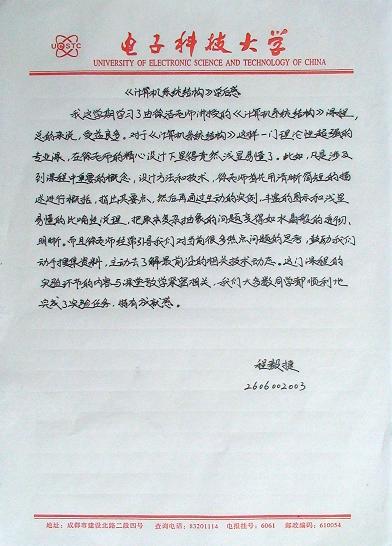 UESTC
电子科技大学
UNIVERSITY OF ELECTRONIC SCIENCE AND TECHNOLOGY OF CHINA
《计算机系统结构》学后感
我这学期学习了由徐洁老师讲授的《计算机系统结构》课程,
总的来说,受益良多。对于《计算机系统结构》这样一门理论性超强的
专业课,在徐老师的精心设计下显得竟然浅显易懂了。比如,凡是涉及
到课程中重要的概念,设计方法和技术,徐老师皆先用清晰简短的描
述进行概括,指出其要点,然后再通过生动的实例,丰富的图示和浅显
易懂的比喻性说理,把原本复杂抽象的问题变得如水晶般的透彻、
明晰。并且徐老师经常引导我们对当前很多热点问题的思考,鼓励我们
动手搜集资料,主动去了解最前沿的相关技术动态。这门课程的
实验环节的内容与课堂教学紧密相关,我们大多数同学都顺利地
完成了实验任务,很有成就感。
程毅捷
2606002003
地址:成都市建设北路二段四号 查询电话:83201114 电报挂号:6061 邮政编码:610054